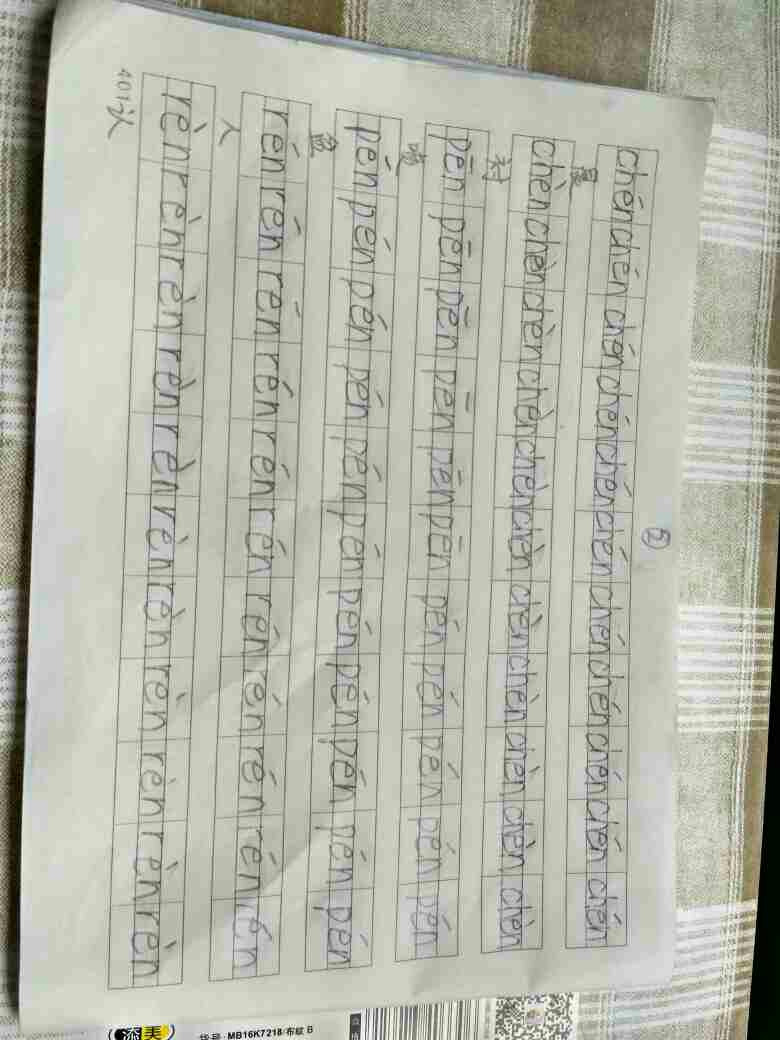 ②
chén chén chén chén chén chén chén chén chén chén chén
晨
chèn chèn chèn chèn chèn chèn chèn chèn chèn chèn chèn
衬
pēn pēn pēn pēn pēn pēn pén pén pén pén pén
喷
pén pén pén pén pén pén pén pén pén pén pén
盆
rén rén rén rén rén rén rén rén rén rén rén
人
rèn rèn rèn rèn rèn rèn rèn rèn rèn rèn rèn
认
添美
货号:MB16K7218/布纹 B